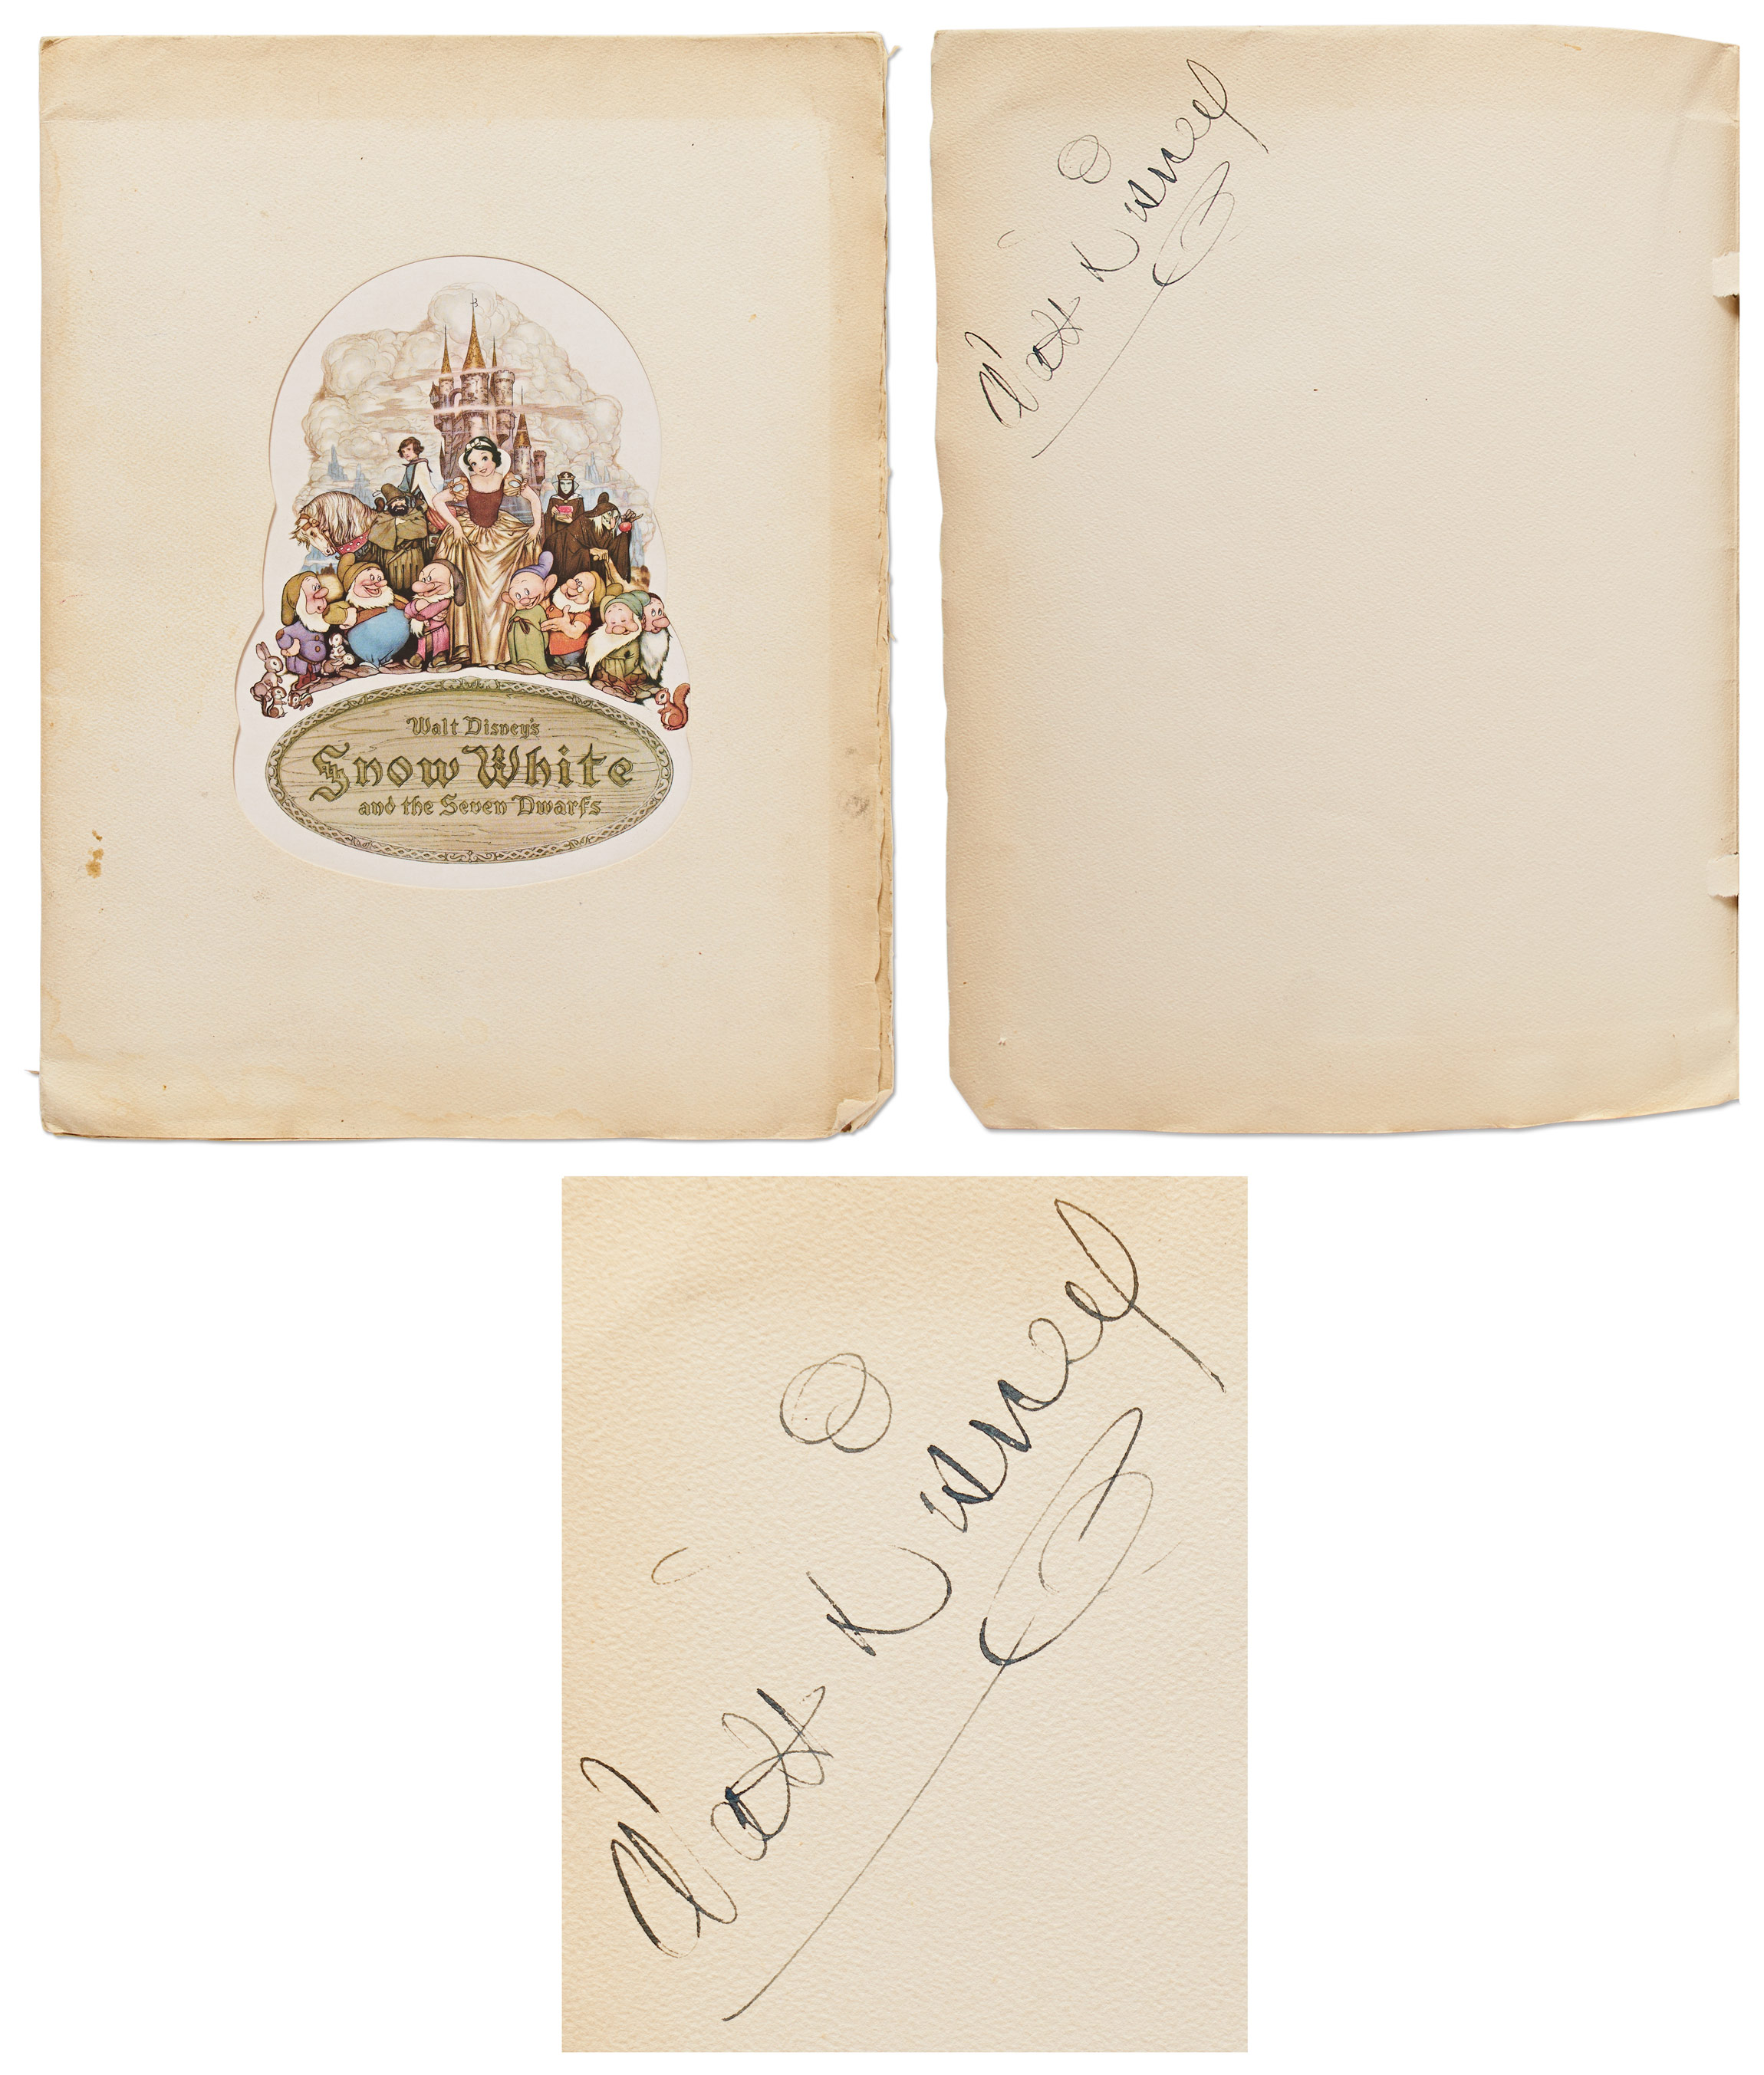 Walt Disney's
Snow White
and the Seven Dwarfs
Walt Disney
Walt Disney